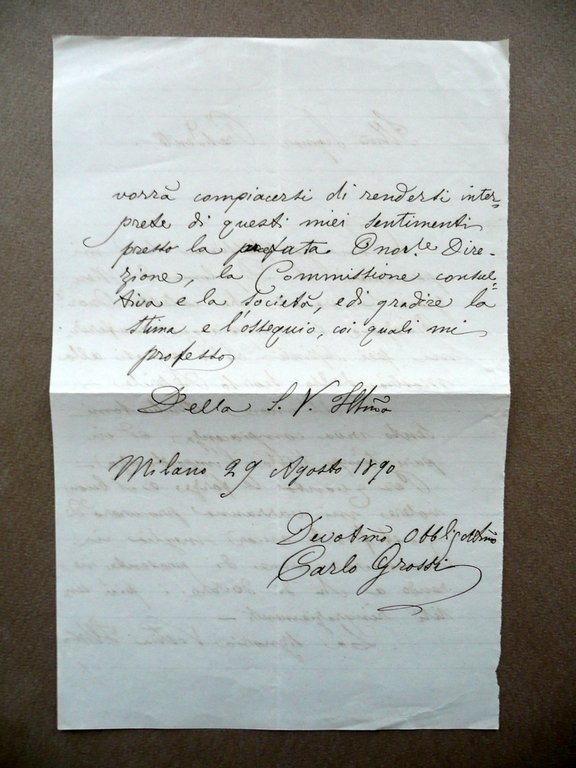 vorrà compiacersi di rendersi inter=
prete di questi miei sentimenti
presso la prefata Onor.le Dire-
zione, la Commissione consul=
tiva e la Società, e di gradire la
stima e l'ossequio, coi quali mi
professo
Della S. V. Illma
Milano 29 Agosto 1890
Devotmo Obbligattmo
Carlo Grossi